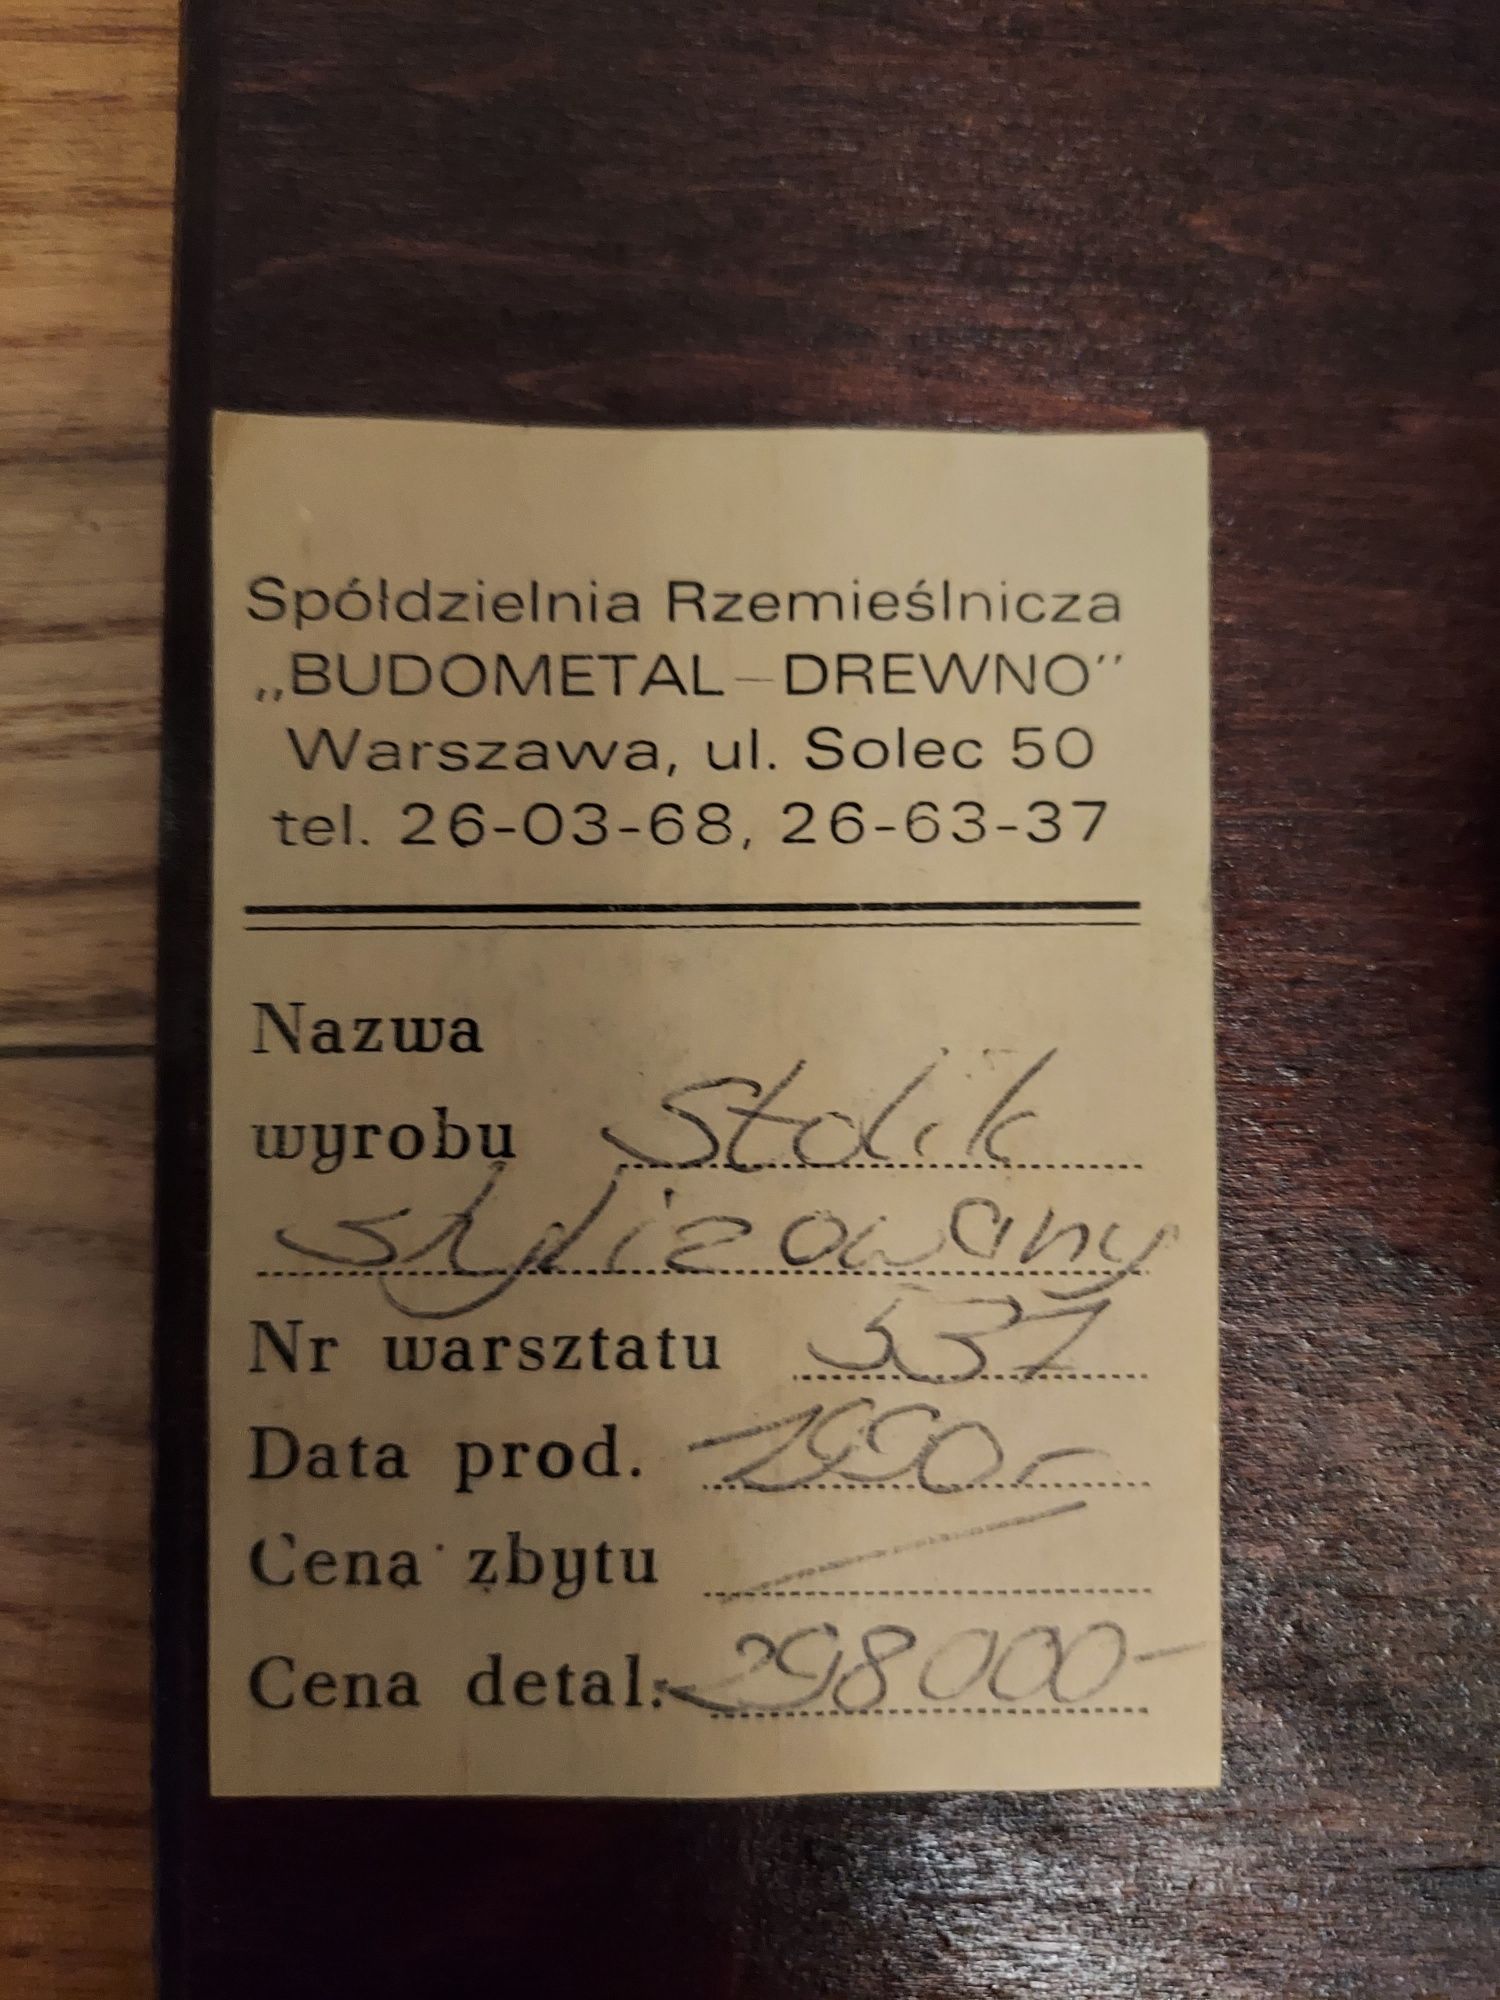 Spółdzielnia Rzemieślnicza
„BUDOMETAL – DREWNO”
Warszawa, ul. Solec 50
tel. 26-03-68, 26-63-37
Nazwa
wyrobu Stolik
stylizowany
Nr warsztatu 537
Data prod. 1990,-
Cena zbytu
Cena detal. 298000-